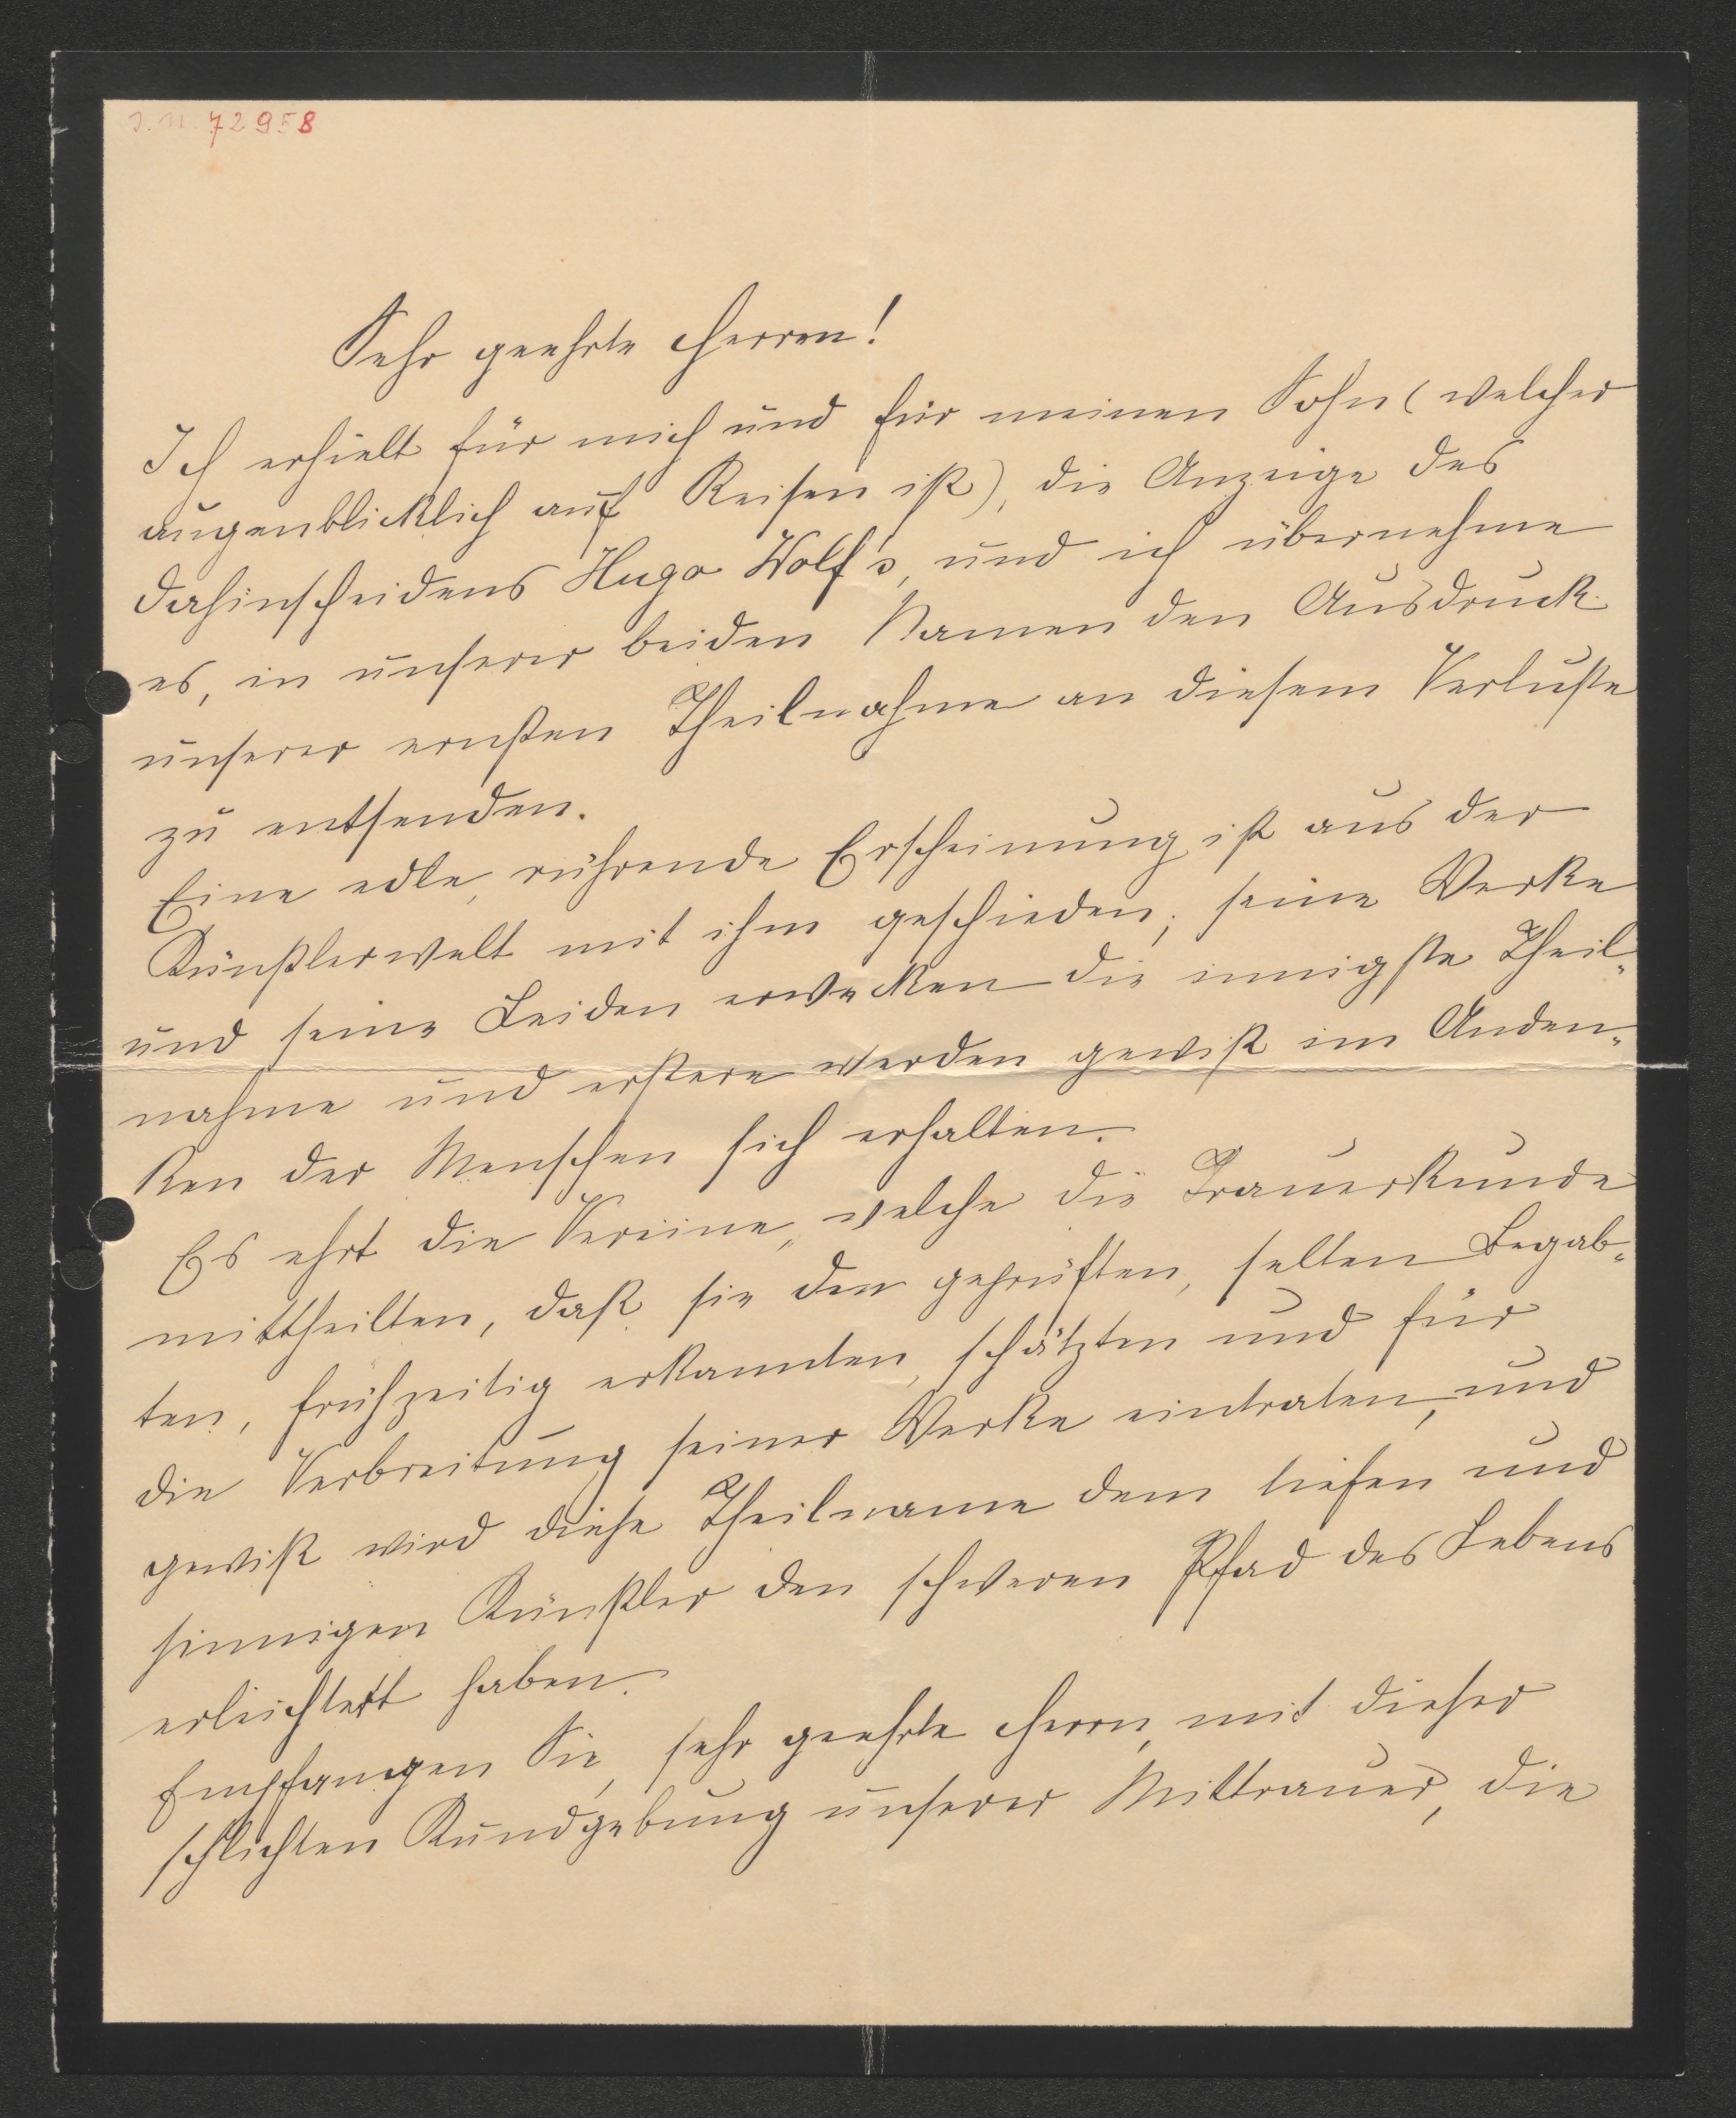 J.N. 72958
Sehr geehrte Herren!
Ich erhielt für mich und für meinen Sohn (welcher
augenblicklich auf Reisen ist), die Anzeige des
Dahinscheidens Hugo Wolf's, und ich übernehme
es, in unserer beiden Namen den Ausdruck
unserer ernsten Theilnahme an diesem Verluste
zu entsenden.
Eine edle, rührende Erscheinung ist aus der
Künstlerwelt mit ihm geschieden; seine Werke
und seine Leiden erwecken die innigste Theil„
nahme und erstere werden gewiß im Anden„
ken der Menschen sich erhalten.
Es ehrt die Vereine, welche die Trauerkunde
mittheilten, daß sie den geprüften, selten Begab„
ten, frühzeitig erkannten, schätzten und für
die Verbreitung seiner Werke eintraten, und
gewiß wird diese Theilname dem tiefen und
sinnigen Künstler den schweren Pfad des Lebens
erleichtert haben.
Empfangen Sie, sehr geehrte Herrn, mit dieser
schlichten Kundgebung unserer Mittrauer, die